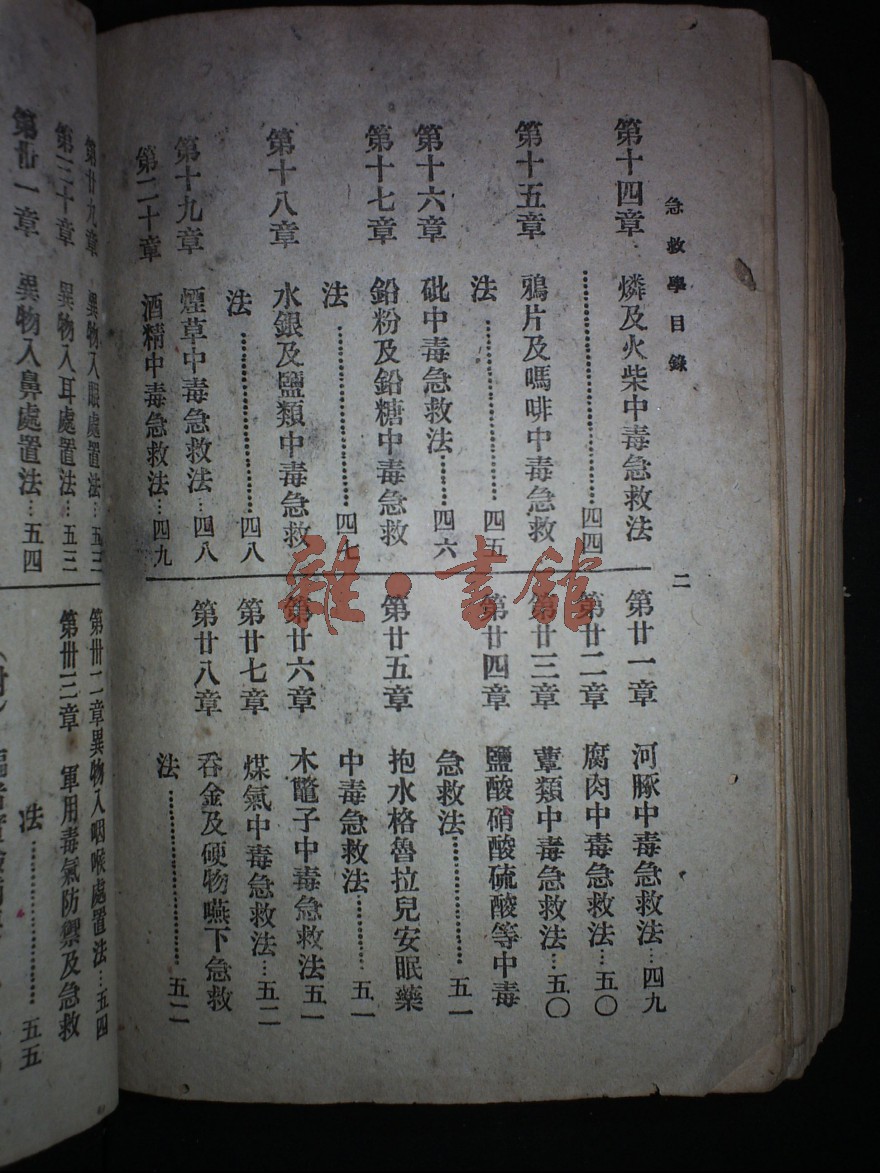 急救學目錄
二
第十四章 燐及火柴中毒急救法
……………………四四
第十五章 鴉片及嗎啡中毒急救
法……………………四五
第十六章 砒中毒急救法……四六
第十七章 鉛粉及鉛糖中毒急救
法……………………四七
第十八章 水銀及鹽類中毒急救
法……………………四八
第十九章 煙草中毒急救法…四八
第二十章 酒精中毒急救法…四九
第廿一章 河豚中毒急救法…四九
第廿二章 腐肉中毒急救法…五〇
第廿三章 蕈類中毒急救法…五〇
第廿四章 鹽酸硝酸硫酸等中毒
急救法……………五一
第廿五章 抱水格魯拉兒安眠藥
中毒急救法………五一
第廿六章 木鼈子中毒急救法五一
第廿七章 煤氣中毒急救法…五二
第廿八章 吞金及硬物嚥下急救
法……………………五二
第廿九章 異物入眼處置法…五三
第三十章 異物入耳處置法…五三
第卅一章 異物入鼻處置法…五四
第卅二章異物入咽喉處置法…五四
第卅三章 軍用毒氣防禦及急救
法……………………五五
雜·書館